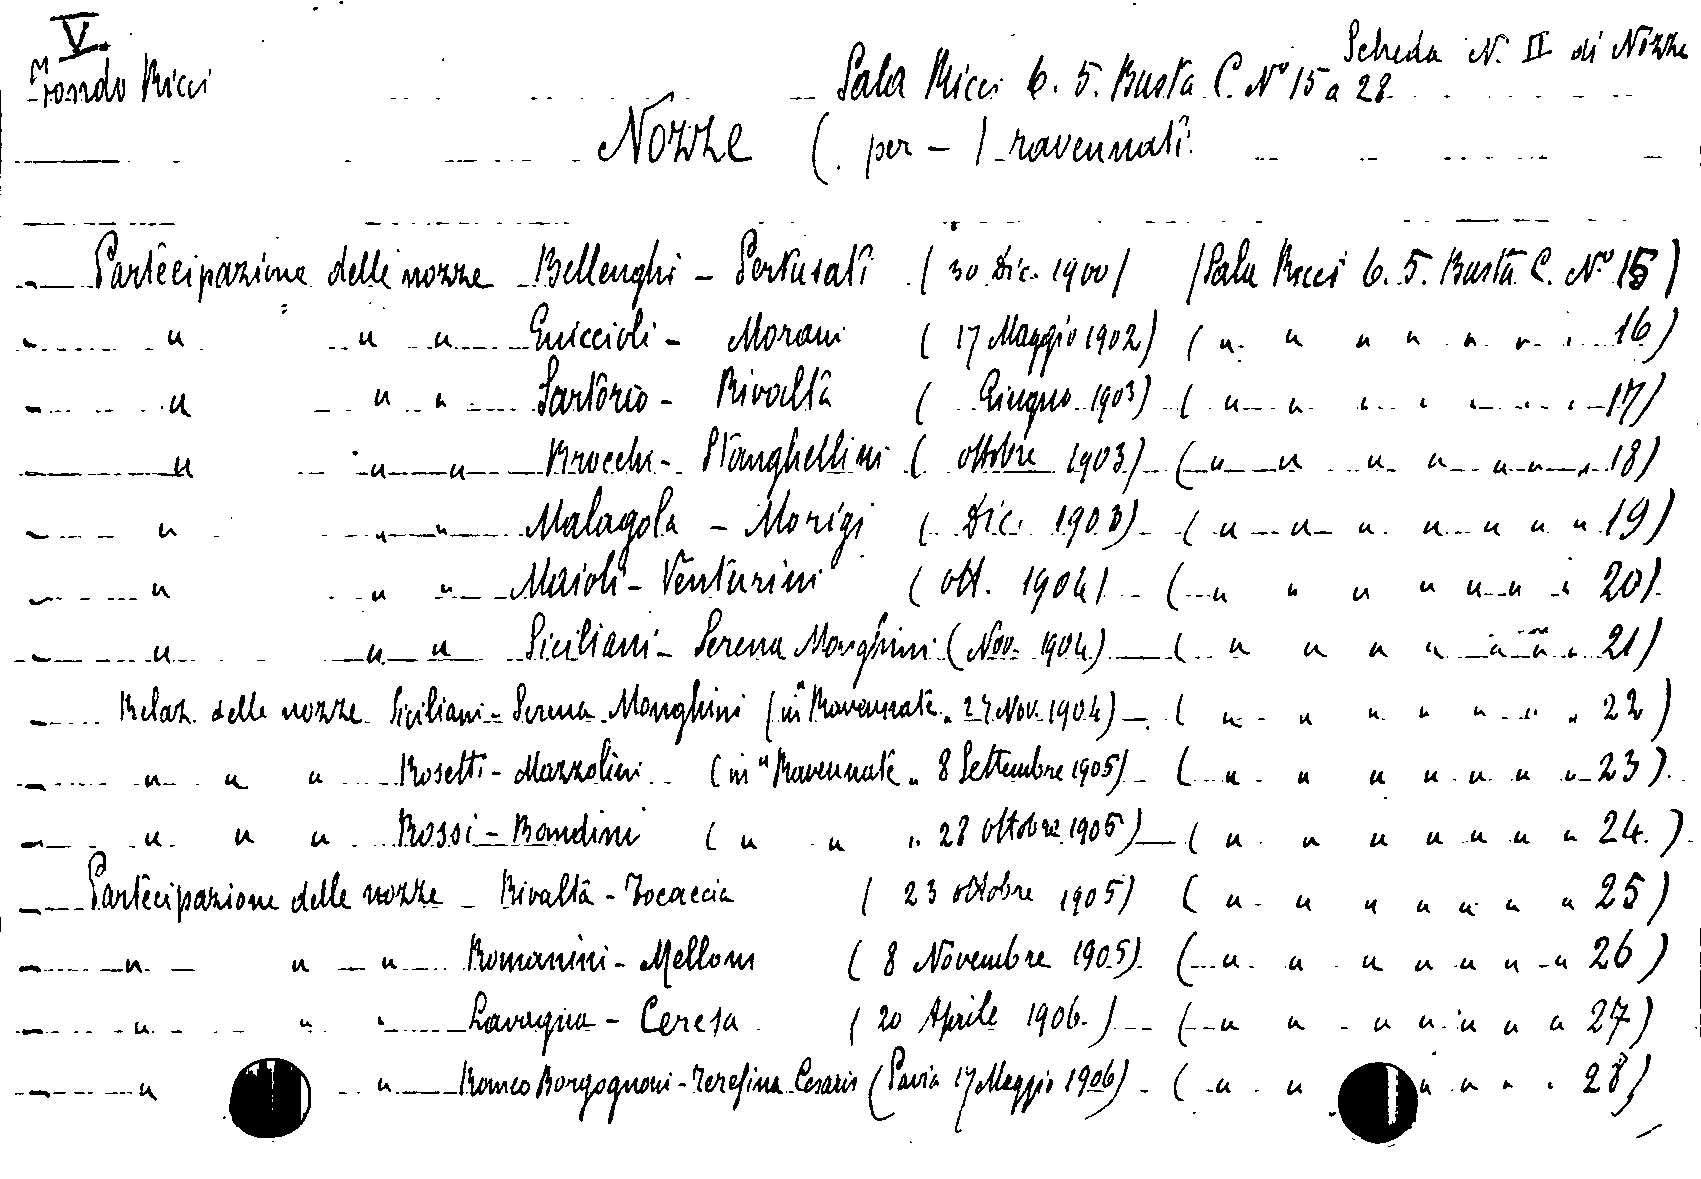 V.
Scheda N. II di Nozze
Fondo Ricci Sala Ricci 6. 5. Busta C. Nº 15 a 28
Nozze ( per - ) ravennati
Partecipazione delle nozze Bellenghi - Pertusati ( 30 Dic. 1900 ) (Sala Ricci 6. 5. Busta C. Nº 15 )
" " " Guiccioli - Morani ( 17 Maggio 1902) ( " " " " " " " 16 )
" " " Sartorio - Rivalta ( Giugno 1903) ( " " " " " " " 17)
" " " Brocchi - Stanghellini ( ottobre 1903) ( " " " " " " " 18)
" " " Malagola - Morigi ( Dic. 1903) ( " " " " " " " 19)
" " " Maioli - Venturini ( ott. 1904) ( " " " " " " " 20).
" " " Siciliani - Serena Monghini ( Nov. 1904) ( " " " " " " " 21)
Relaz. delle nozze Siciliani - Serena Monghini (in "Ravennate" 27 Nov. 1904) ( " " " " " " " 22 )
" " " Rosetti - Mazzolini (in "Ravennate" 8 Settembre 1905) ( " " " " " " " 23 ).
" " " Rossi - Bandini ( " " " 28 ottobre 1905) ( " " " " " " " 24. )
Partecipazione delle nozze - Rivalta - Tocaccia ( 23 ottobre 1905) ( " " " " " " " 25 )
" " " Romanini - Melloni ( 8 Novembre 1905) ( " " " " " " " 26 )
" " " Lavagna - Ceresa ( 20 Aprile 1906. ) ( " " " " " " " 27)
" " Romeo Borgognoni - Terefina Cesaris (Pavia 17 Maggio 1906) ( " " " " " " 28)